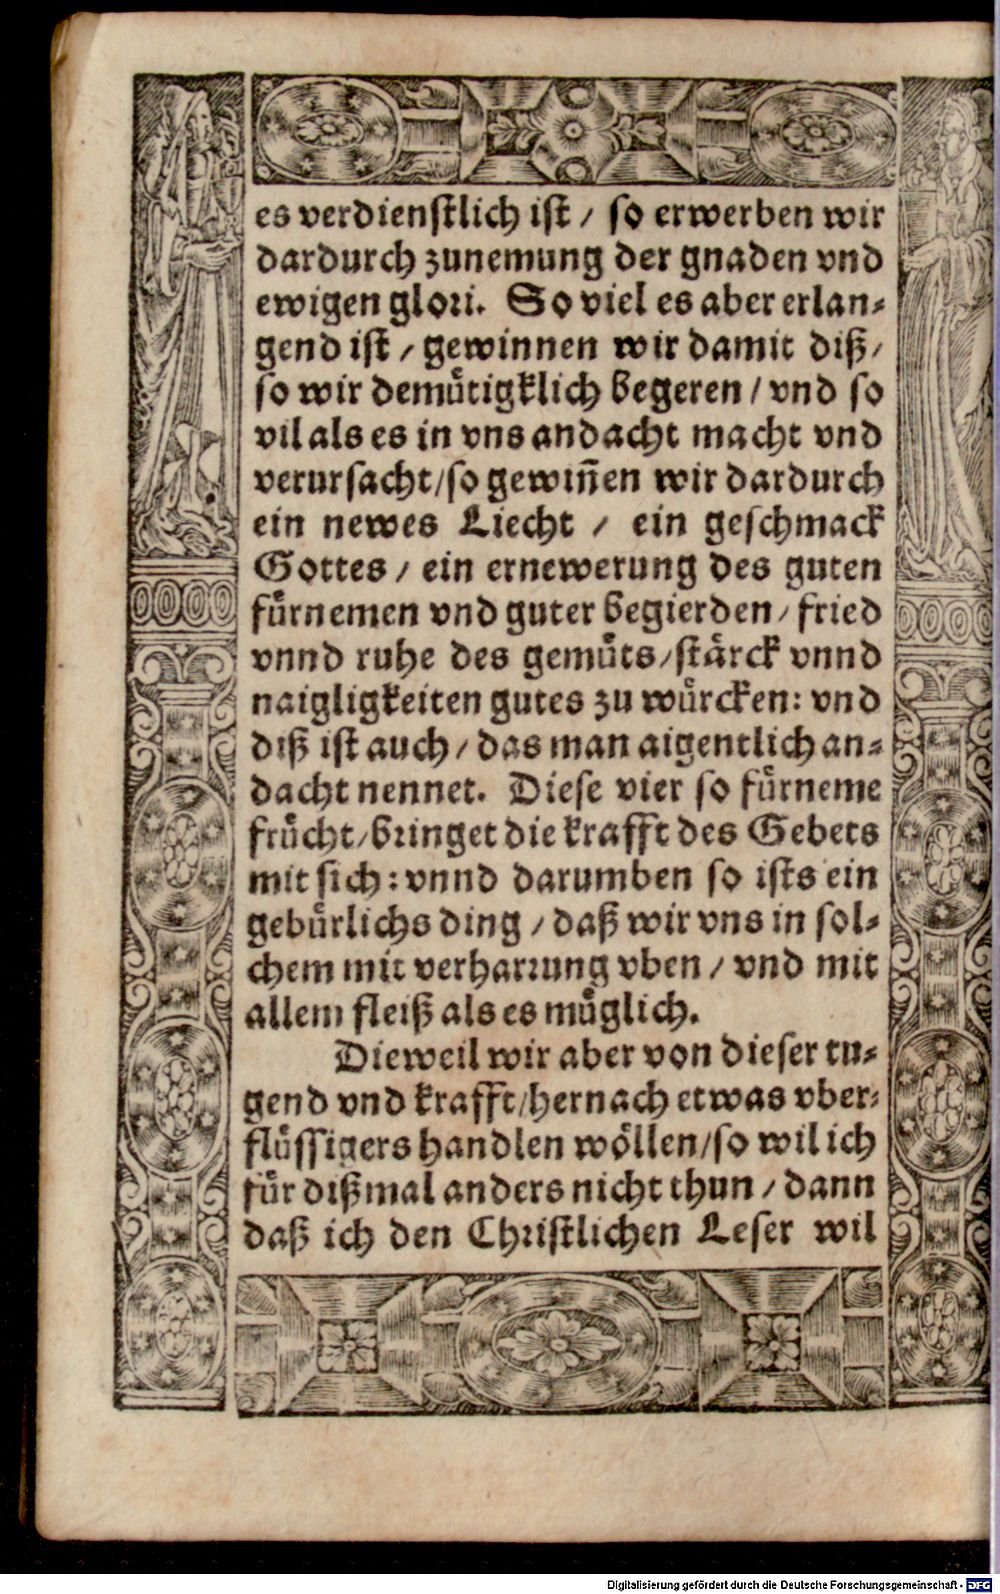 es verdienſtlich iſt / ſo erwerben wir
dardurch zunemung der gnaden vnd
ewigen glori. So viel es aber erlan⸗
gend iſt / gewinnen wir damit diß /
ſo wir demuͤtigklich begeren / vnd ſo
vil als es in vns andacht macht vnd
verurſacht / ſo gewiñen wir dardurch
ein newes Liecht / ein geſchmack
Gottes / ein ernewerung des guten
fuͤrnemen vnd guter begierden / fried
vnnd ruhe des gemuͤts / ſtaͤrck vnnd
naigligkeiten gutes zu wuͤrcken: vnd
diß iſt auch / das man aigentlich an⸗
dacht nennet. Dieſe vier ſo fuͤrneme
fruͤcht / bringet die krafft des Gebets
mit ſich: vnnd darumben ſo iſts ein
gebuͤrlichs ding / daß wir vns in ſol⸗
chem mit verharꝛung vben / vnd mit
allem fleiß als es muͤglich.
Dieweil wir aber von dieſer tu⸗
gend vnd krafft / hernach etwas vber⸗
fluͤſſigers handlen woͤllen / ſo wil ich
fuͤr dißmal anders nicht thun / dann
daß ich den Chriſtlichen Leſer wil
Digitalisierung gefördert durch die Deutsche Forschungsgemeinschaft - DFG